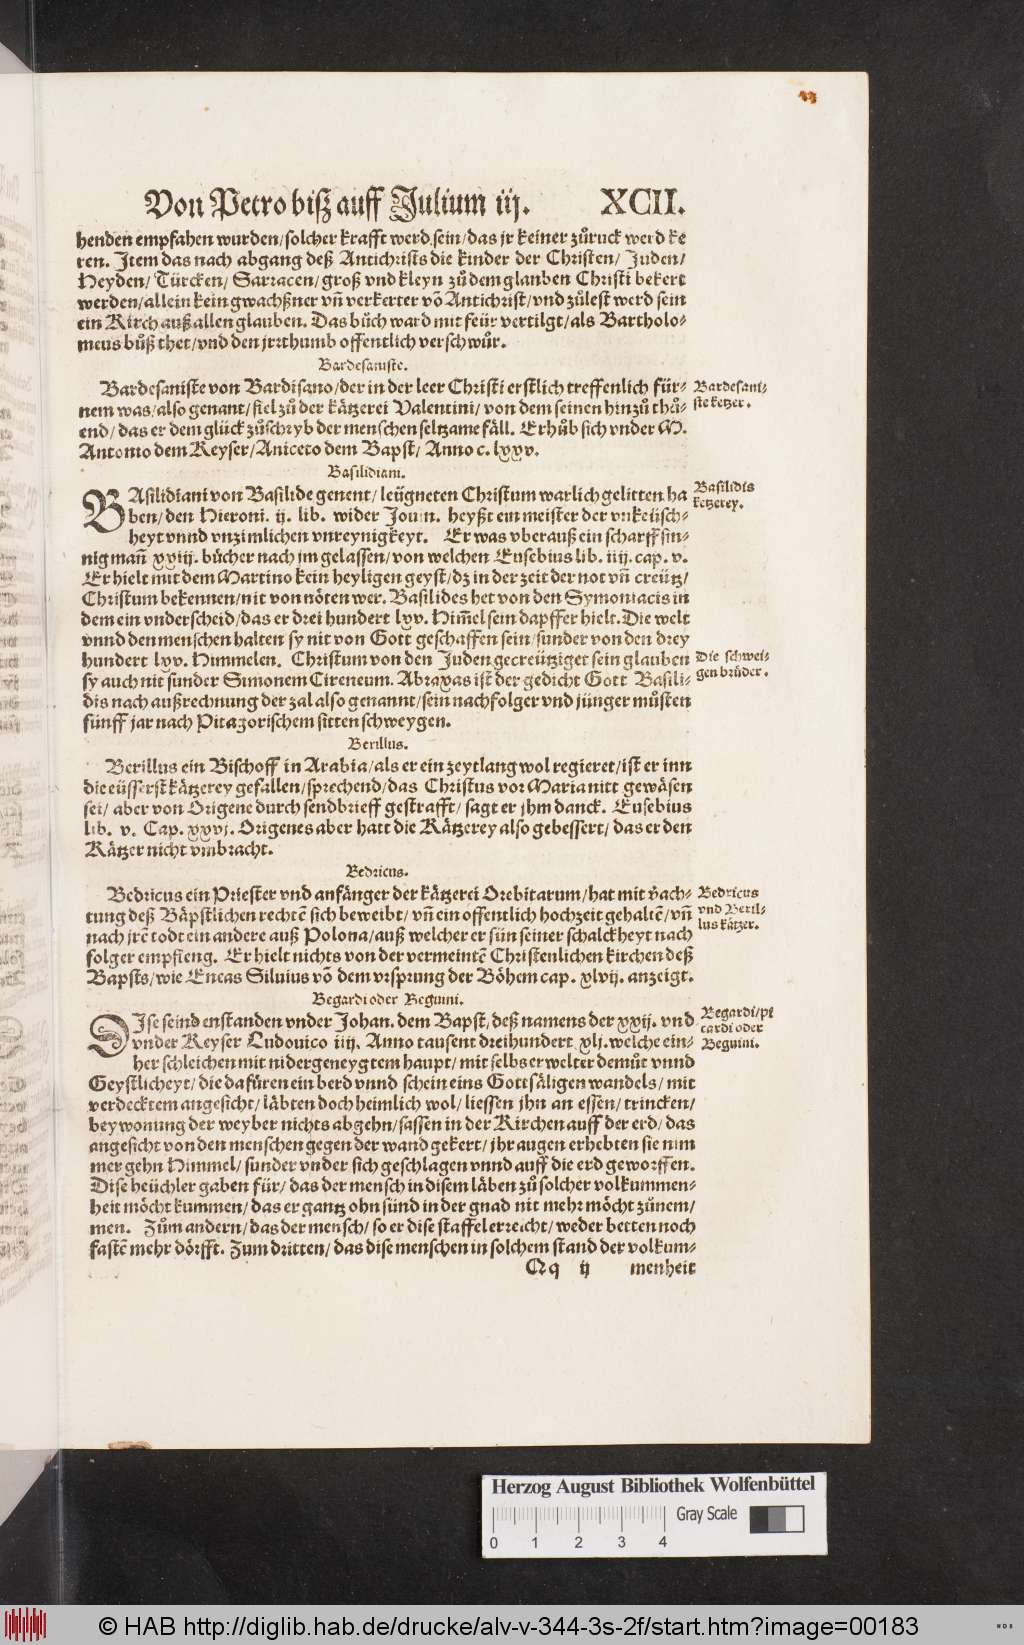 Von Petro biß auff Julium iij. XCII.
henden empfahen wurden/ solcher krafft werd sein/ das jr keiner zůruck werd ke
ren. Item das nach abgang deß Antichrists die kinder der Christen/ Juden/
Heyden/ Türcken/ Sarracen/ groß vnd kleyn zů dem glauben Christi bekert
werden/ allein kein gwachßner vñ verkerter võ Antichrist/ vnd zůlest werd sein
ein Kirch auß allen glauben. Das bůch ward mit feür vertilgt/ als Bartholo-
meus bůß thet/ vnd den jrrthumb offentlich verschwůr.
Bardesaniste.
Bardesaniste von Bardisano/ der in der leer Christi erstlich treffenlich für-
nem was/ also genant/ fiel zů der kätzerei Valentini/ von dem seinen hinzů thů-
end/ das er dem glück zůschryb der menschen seltzame fäll. Erhůb sich vnder M.
Antonio dem Keyser/ Aniceto dem Bapst/ Anno c. lxxv.
Bardesani-
ste ketzer.
Basilidiani.
BAsilidiani von Basilide genent/ leügneten Christum warlich gelitten ha
ben/ den Hieroni. ij. lib. wider Jouin. heyßt ein meister der vnkeüsch-
heyt vnnd vnzimlichen vnreynigkeyt. Er was vberauß ein scharff sin-
nig mañ xxiij. bücher nach jm gelassen/ von welchen Eusebius lib. iiij. cap. v.
Er hielt mit dem Martino kein heyligen geyst/ dz in der zeit der not vñ creütz/
Christum bekennen/ nit von nöten wer. Basilides het von den Symoniacis in
dem ein vnderscheid/ das er drei hundert lxv. Him̃el sein dapffer hielt. Die welt
vnnd den menschen halten sy nit von Gott geschaffen sein/ sunder von den drey
hundert lxv. Himmelen. Christum von den Juden gecreütziget sein glauben
sy auch nit sunder Simonem Cireneum. Abraxas ist der gedicht Gott Basili-
dis nach außrechnung der zal also genannt/ sein nachfolger vnd jünger můsten
fünff jar nach Pitagorischem sitten schweygen.
Basilidis
ketzerey.
Die schwei-
gen brüder.
Berillus.
Berillus ein Bischoff in Arabia/ als er ein zeytlang wol regieret/ ist er inn
die eüsserst kätzerey gefallen/ sprechend/ das Christus vor Maria nitt gewäsen
sei/ aber von Origene durch sendbrieff gestrafft/ sagt er jhm danck. Eusebius
lib. v. Cap. xxvj. Origenes aber hatt die Kätzerey also gebessert/ das er den
Kätzer nicht vmbracht.
Bedricus.
Bedricus ein Priester vnd anfänger der kätzerei Orebitarum/ hat mit v̈ach-
tung deß Bäpstlichen rechtẽ sich beweibt/ vñ ein offentlich hochzeit gehaltẽ/ vñ
nach jrẽ todt ein andere auß Polona/ auß welcher er sün seiner schalckheyt nach
folger empfieng. Er hielt nichts von der vermeintẽ Christenlichen kirchen deß
Bapsts/ wie Eneas Siluius võ dem vrsprung der Böhem cap. xlvij. anzeigt.
Bedricus
vnd Beril-
lus kätzer.
Begardi oder Beguini.
DIse seind enstanden vnder Johan. dem Bapst/ deß namens der xxij. vnd
vnder Keyser Ludouico iiij. Anno tausent dreihundert xlj. welche ein-
her schleichen mit nidergeneygtem haupt/ mit selbs erwelter demůt vnnd
Geystlicheyt/ die da füren ein berd vnnd schein eins Gottsäligen wandels/ mit
verdecktem angesicht/ läbten doch heimlich wol/ liessen jhn an essen/ trincken/
beywonung der weyber nichts abgehn/ sassen in der Kirchen auff der erd/ das
angesicht von den menschen gegen der wand gekert/ jhr augen erhebten sie nim
mer gehn Himmel/ sunder vnder sich geschlagen vnnd auff die erd geworffen.
Dise heüchler gaben für/ das der mensch in disem läben zů solcher volkummen-
heit möcht kummen/ das er gantz ohn sünd in der gnad nit mehr möcht zůnem/
men. Zům andern/ das der mensch/ so er dise staffel erreicht/ weder betten noch
fastẽ mehr dörfft. Zum dritten/ das dise menschen in solchem stand der volkum-
Begardi/ pi
cardi oder
Beguini.
Qq ij menheit
Herzog August Bibliothek Wolfenbüttel
Gray Scale
0 1 2 3 4
© HAB http://diglib.hab.de/drucke/alv-v-344-3s-2f/start.htm?image=00183